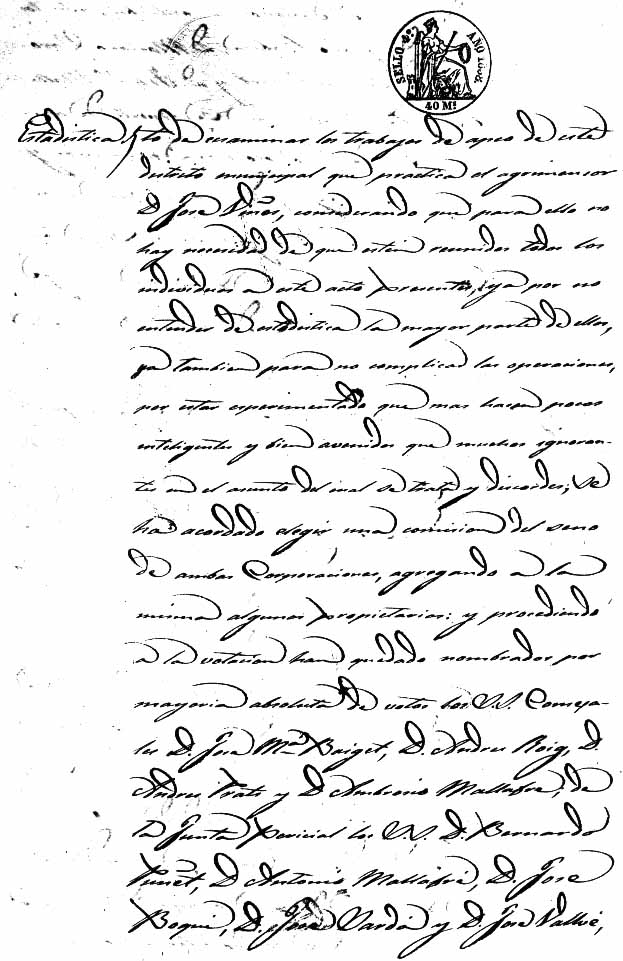 SELLO 4º AÑO
40 Ms
Estadistica y lo de examinar los trabajos de apeo de este
distrito municipal que practica el agrimensor
D. Jose Viñes, considerando que para ello no
hay necesidad de que esten reunidos todos los
individuos a este acto presentes, ya por no
entender de estadistica la mayor parte de ellos,
ya tambien para no complicar las operaciones,
por estar esperimentado que mas hacen pocos
inteligentes y bien avenidos que muchos ignoran-
tes en el asunto del cual se trata y discordes; se
ha acordado elegir una comision del seno
de ambas Corporaciones, agregando a la
misma algunos propietarios: y procediendo
a la votacion han quedado nombrados por
mayoria absoluta de votos los S.S. Conceja-
les D. Jose Mª Baiget, D. Andres Roig, D.
Andres Prats y D. Ambrosio Mallafré, de
la Junta pericial los S.S. D. Bernardo
D. Antonio Mallafré, D. Jose
Boqué, D. José Vardá y D. Jose Vallvé,